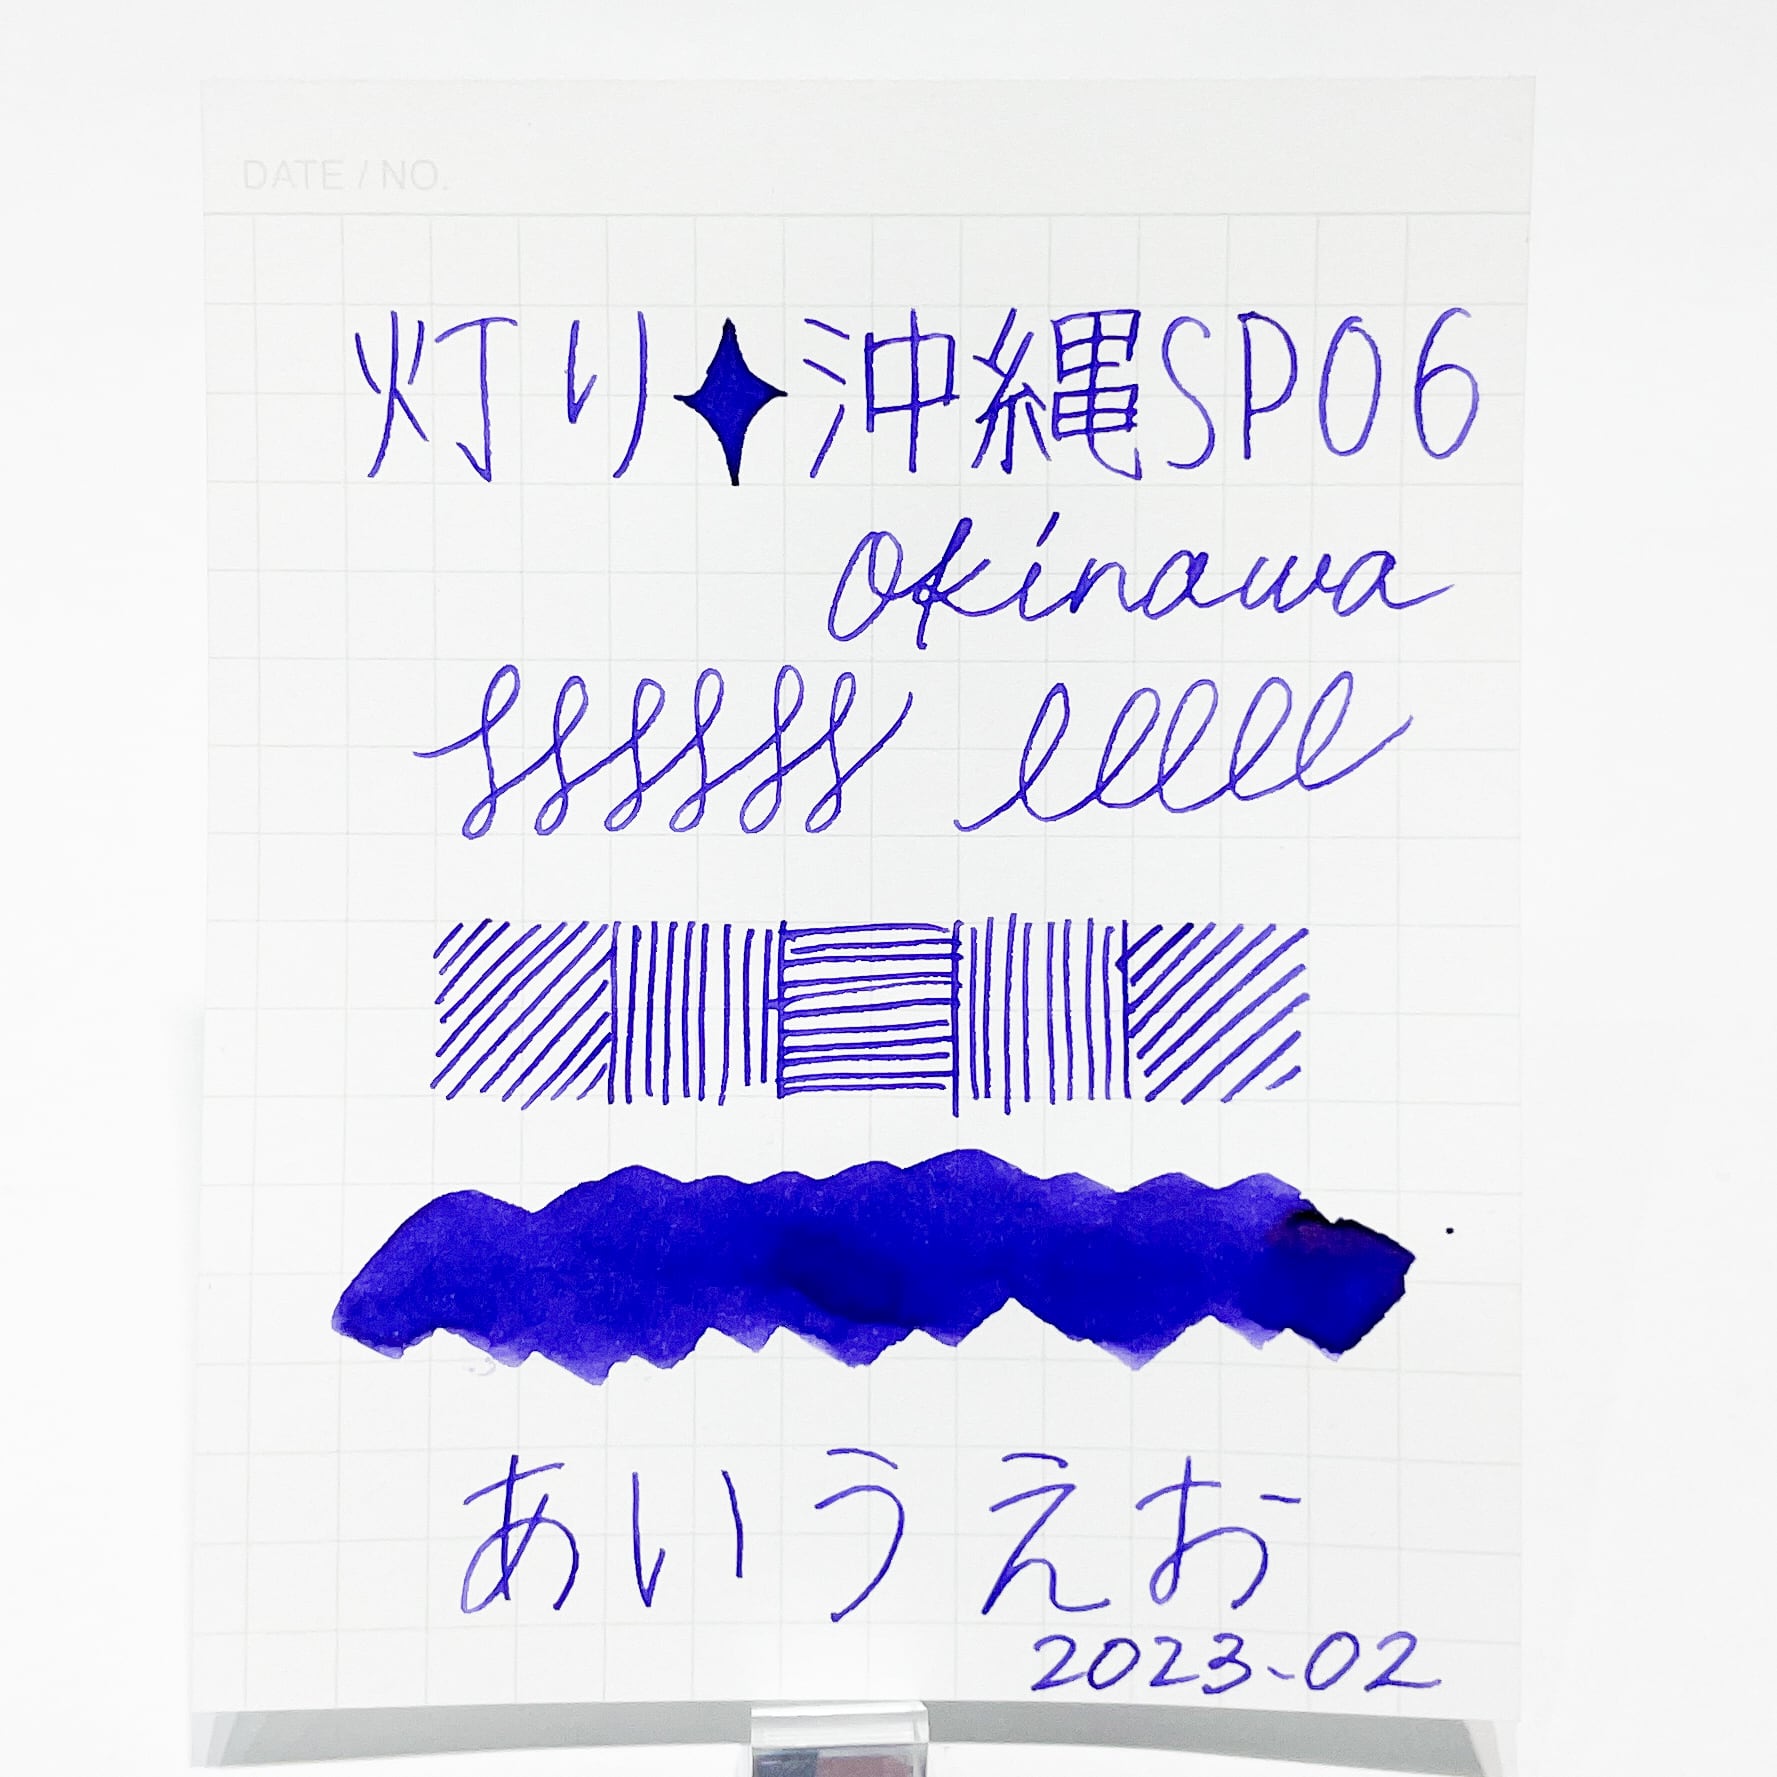 DATE / NO.
灯り✦沖縄SP06
okinawa
あいうえお
2023-02